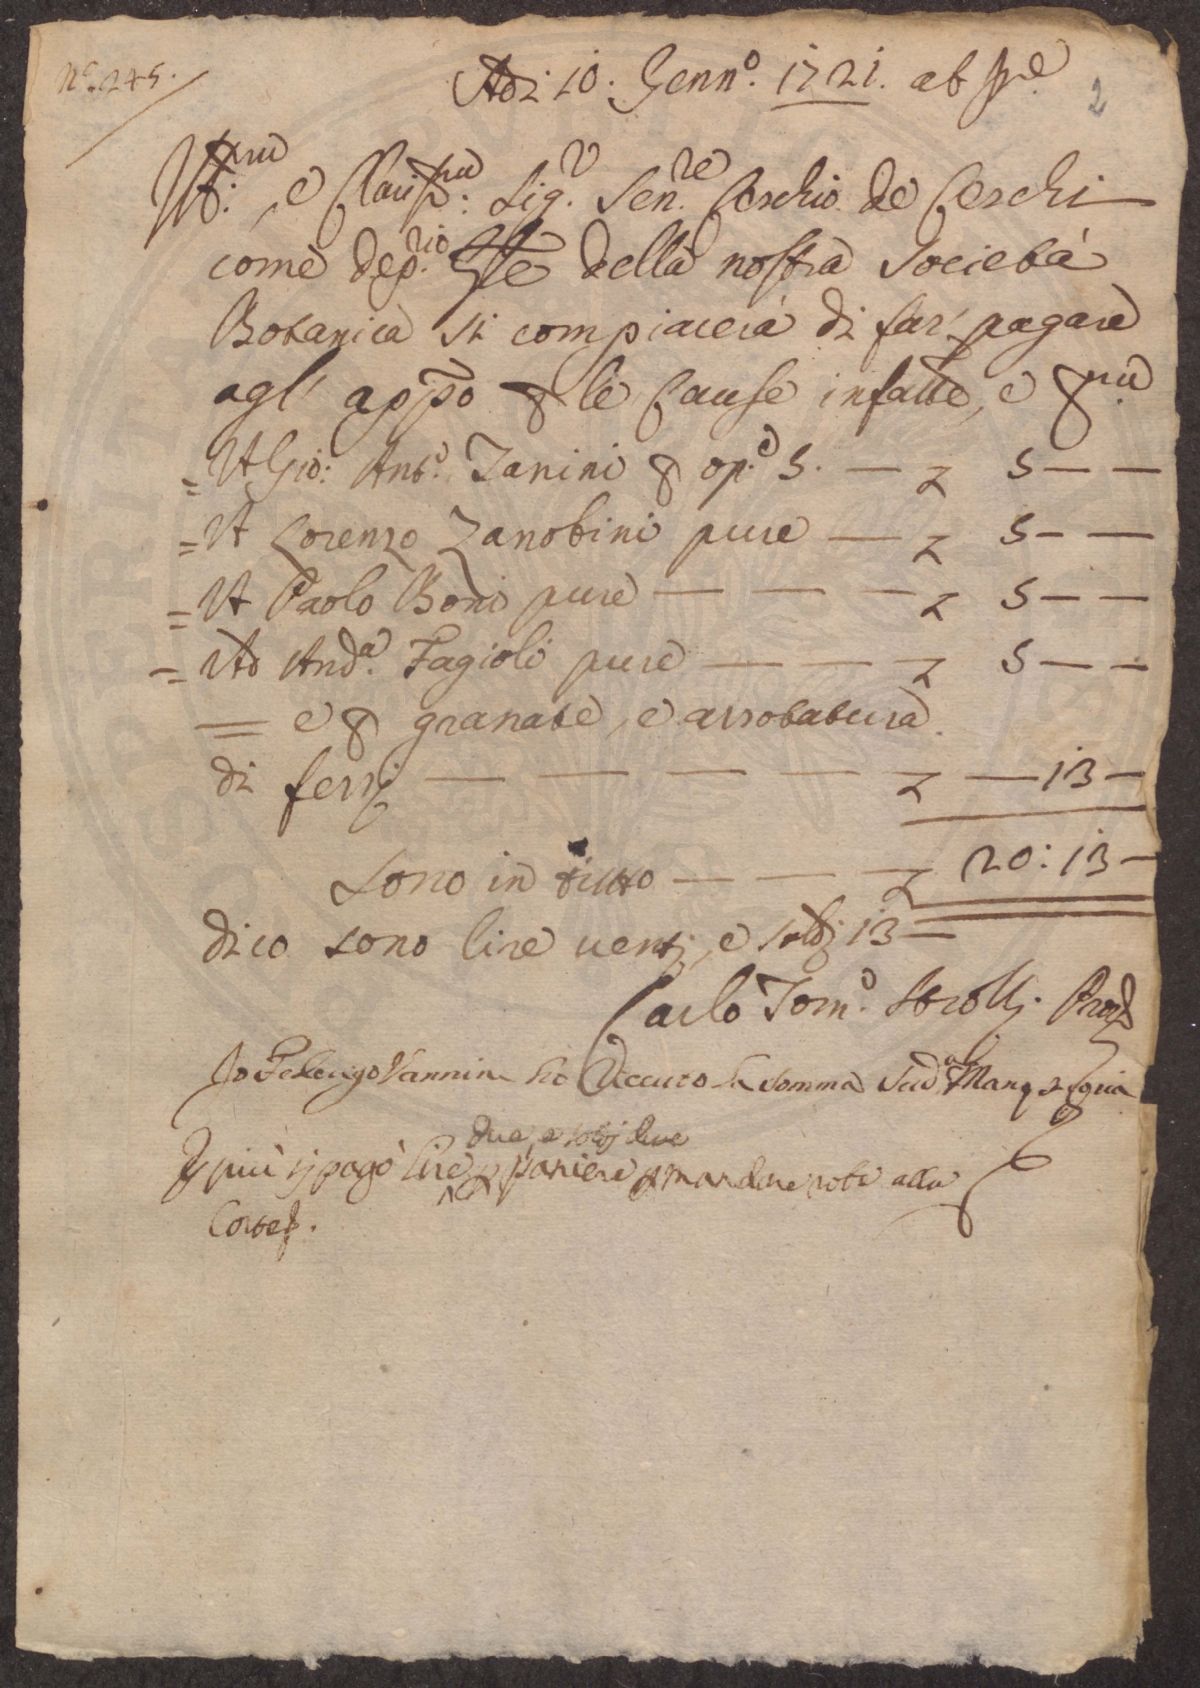 N.o 245.
2
Adi 10. Genn.o 1721. ab
Ill:mo, e Clariss:mo Sig.r Sen.re Cerchio de Cerchi
come dep.rio della nostra Società
Botanica si compiacerà di far' pagare
agl' app:o p le Cause infatte, e p
= A Gio: Ant.o Zanini p op.e 5. — L 5 — —
= A Lorenzo Zanobini pure — L 5 — —
= A Paolo Boni pure — — — L 5 — —
= Ad And.a Fagioli pure — — L 5 — —
= e p granate, e arrotatura
di ferri — — — — L — 13 —
Sono in tutto — — — L 20: 13 —
dico sono lire venti, e soldi 13 =
Carlo Tom.o Strozzi
Io Vannini ho riceuto la somma
due, e soldi due
E più si pagò lire p paniere p mandare robe alla